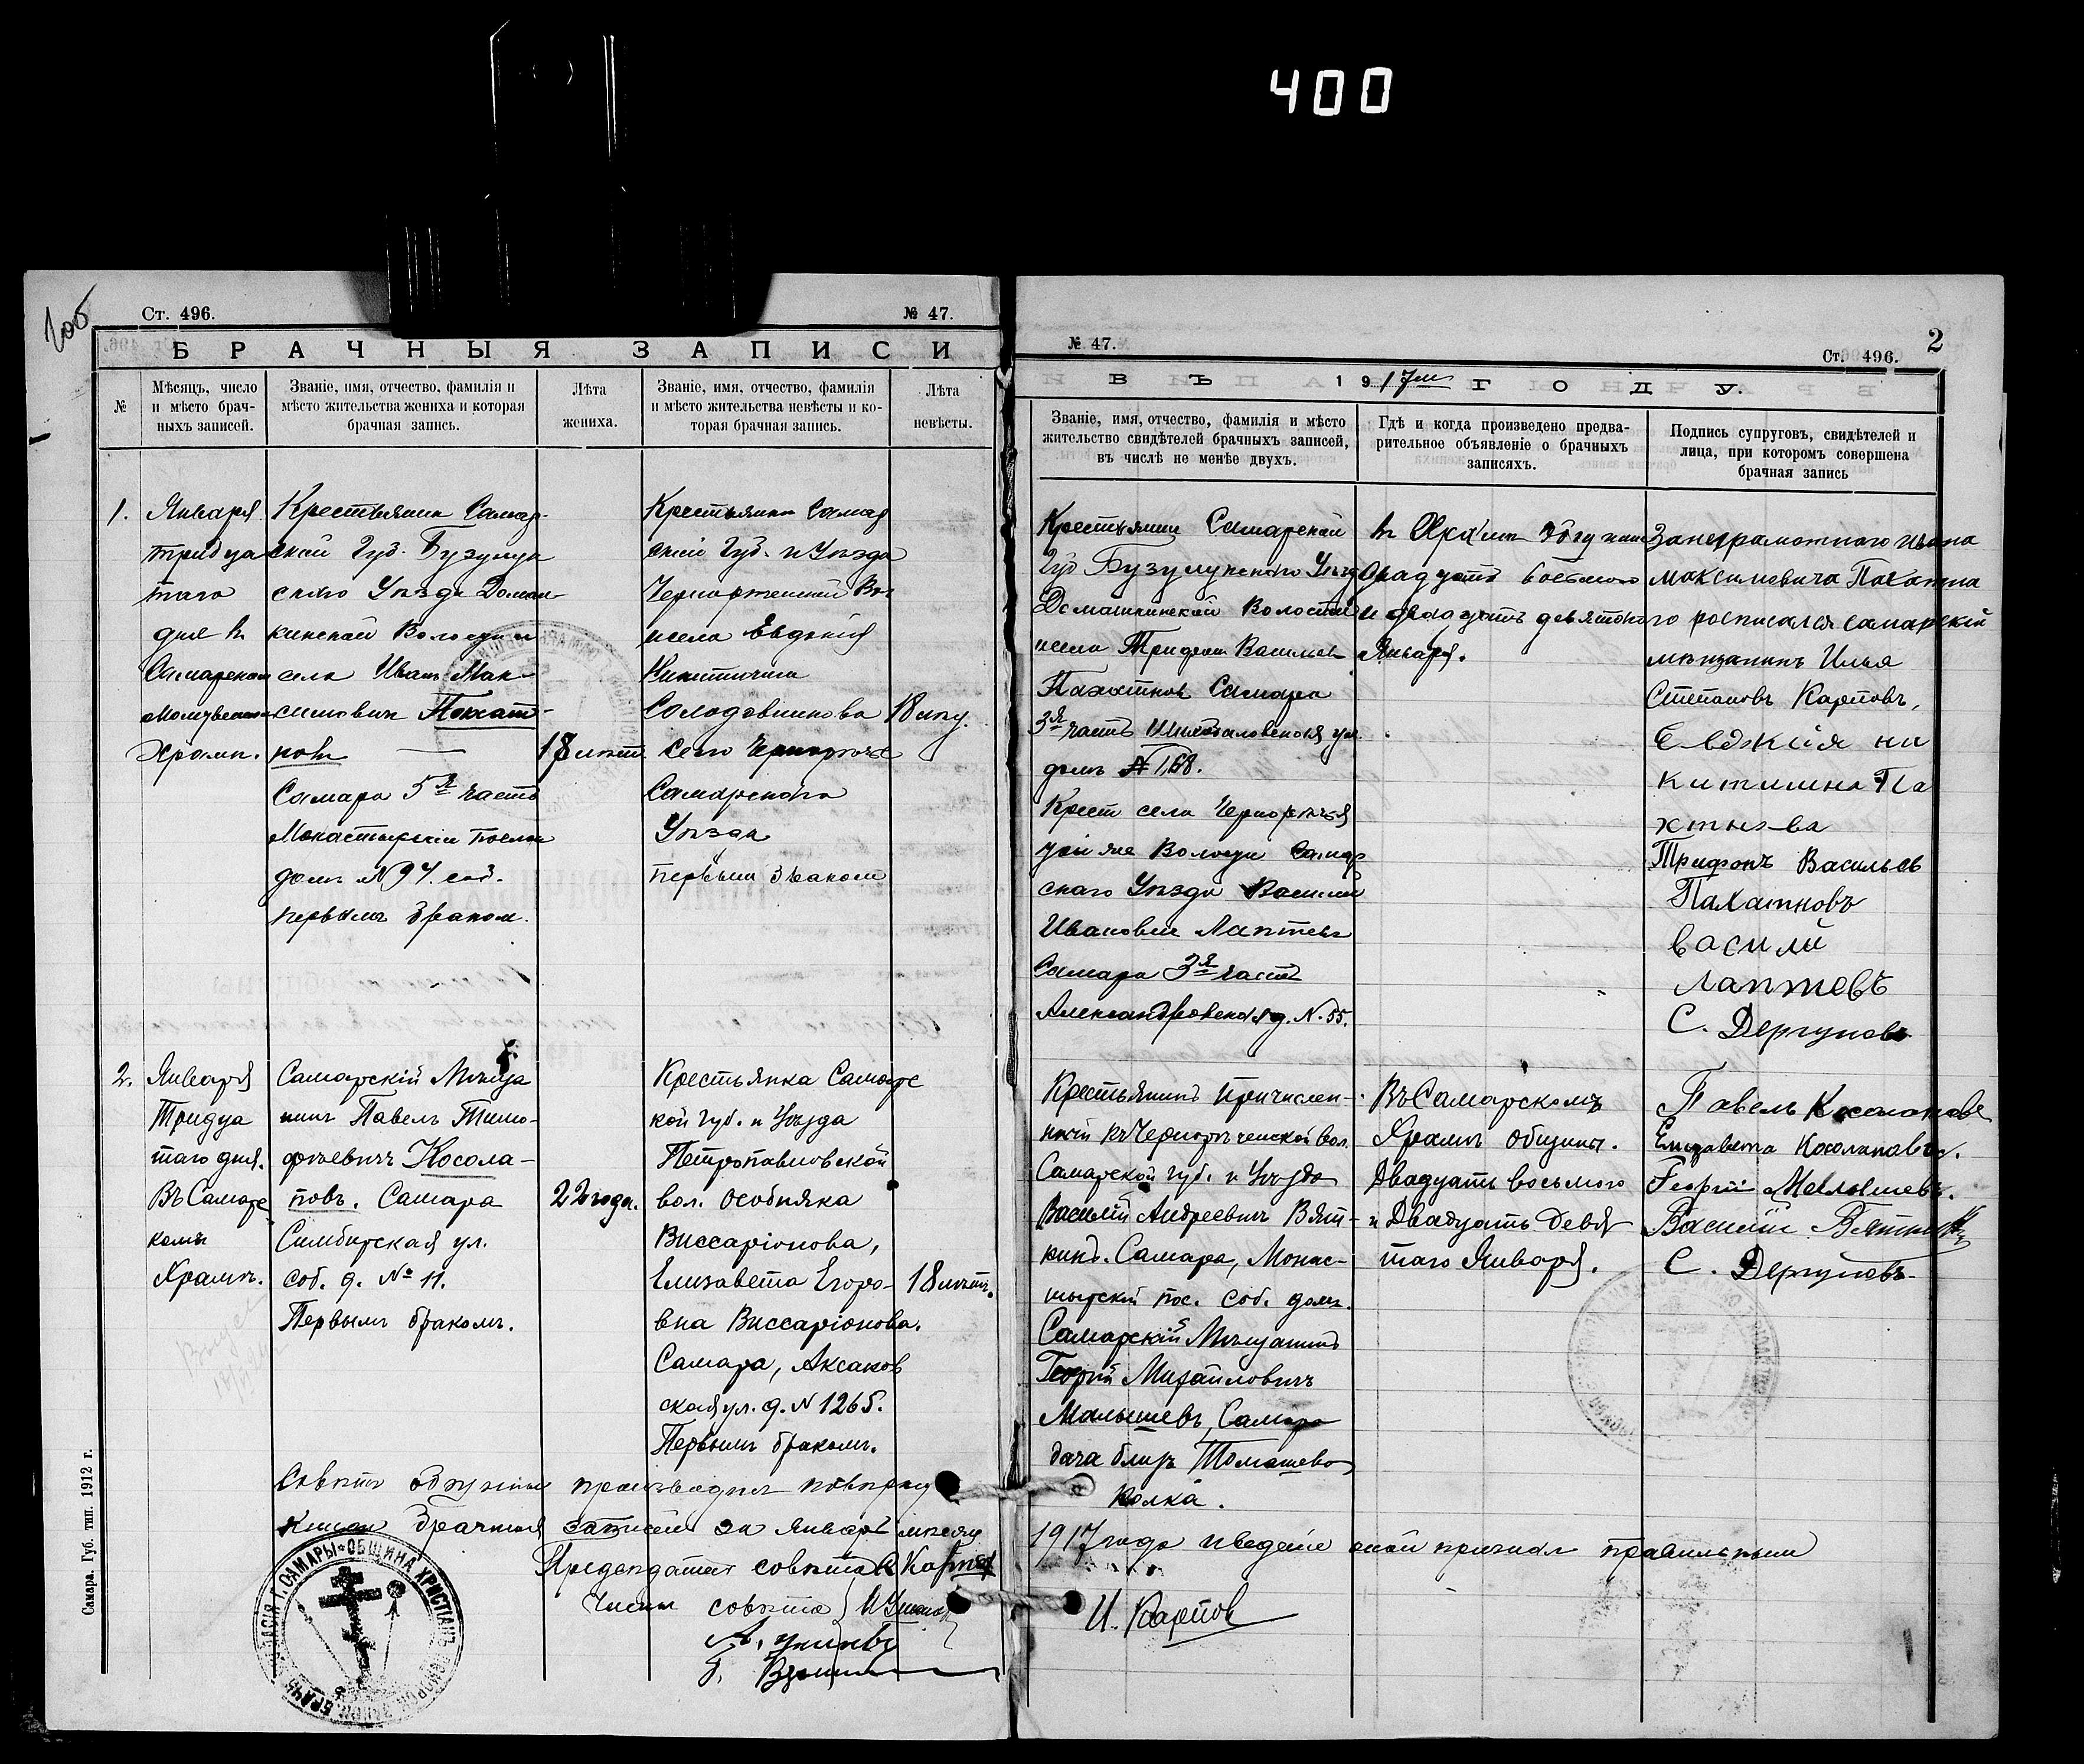 400
Ст. 496.
№ 47.
БРАЧНЫЯ ЗАПИСИ
№
Мѣсяцъ, число
и мѣсто брач-
ныхъ записей.
Званіе, имя, отчество, фамилія и
мѣсто жительства жениха и которая
брачная запись.
Лѣта
жениха.
Званіе, имя, отчество, фамилія
и мѣсто жительства невѣсты и ко-
торая брачная запись.
Лѣта
невѣсты.
1.
Января
тридца
таго
дня въ
Самарском
Молитвенном
Храмѣ.
Крестьянин Самар-
ской Губ. Бузулук
скаго Уѣзда Домаш-
кинской Волости и
села Иванъ Мак-
симовичъ Пахат-
новъ
Самара 5я часть
Монастырскій поселок
домъ №94. соб.
первымъ браком.
18 лѣт.
Крестьянка Самар
ской Губ. и Уѣзда
Чернорѣченской Вол.
и села Евдокія
Никитична
Солодовникова
село Чернорѣчье
Самарскаго
Уѣзда
первым браком
18 лѣт.
2.
Января
Тридца
таго дня.
Въ Самарс
комъ
Храмѣ.
Самарскій Мѣща
нинъ Павелъ Тимо-
фѣевичъ Косола-
повъ. Самара
Симбирская ул.
соб. д. № 11.
Первымъ бракомъ.
22 года.
Крестьянка Самарс
кой губ. и Уѣзда
Петропавловской
вол. Особняка
Виссаріонова,
Елизавета Егоро-
вна Виссаріонова.
Самара, Аксаков
ская ул. д. N 1265.
Первымъ бракомъ.
18 лѣтъ.
Совѣтъ общины производил повѣрку
книги брачныя записей за Январь мѣсяц
Предсѣдатель совѣта
Члены совѣта
Самара. Губ. тип. 1912 г.
№ 47.
Ст. 496.
2
ВЪ 1917м ГОДУ.
Званіе, имя, отчество, фамилія и мѣсто
жительство свидѣтелей брачныхъ записей,
въ числѣ не менѣе двухъ.
Гдѣ и когда произведено предва-
рительное объявленіе о брачныхъ
записяхъ.
Подпись супруговъ, свидѣтелей и
лица, при которомъ совершена
брачная запись
Крестьянин Самарской
Губ Бузулукскаго Уѣзд
Домашкинской Волости
и села Трифон Васильев
Пахатнов Самара
3я часть ул.
домъ № 168.
Крест села Чернорѣчья
той же Волости Самар
скаго Уѣзда Василий
Иванович Лаптевъ
Самара 3я часть
Александровская д. N. 55.
въ Храмѣ Общины
двадцать восьмого
и двадцать девятого
Января.
За неграмотного Ивана
Максимовича Пахатна
го росписался самарский
мѣщанинъ Илья
Степановъ Карповъ,
Евдокия ни
китишна Па
Трифонъ Васильев
Пахатновъ
Василий
лаптевъ
С. Дергуновъ
Крестьянинъ Причислен-
ный къ Чернорѣченской вол.
Самарской губ. и Уѣзда
Василій Андреевичъ Вят-
кинъ. Самара, Монас-
тырскій пос. соб. домъ.
Самарскій Мѣщанинъ
Георгій Михайловичъ
Малышевъ, Самара
дача близ Томашева
Колка.
Въ Самарскомъ
Храмѣ общины.
Двадцать восьмого
и Двадцать Девя
таго Января.
Павелъ Косолапов
Елизавета Косолапова.
Георгій Малышевъ.
Василій Вяткинъ
С. Дергуновъ
1917 года и ведение оной признал правильным
И. Карпов